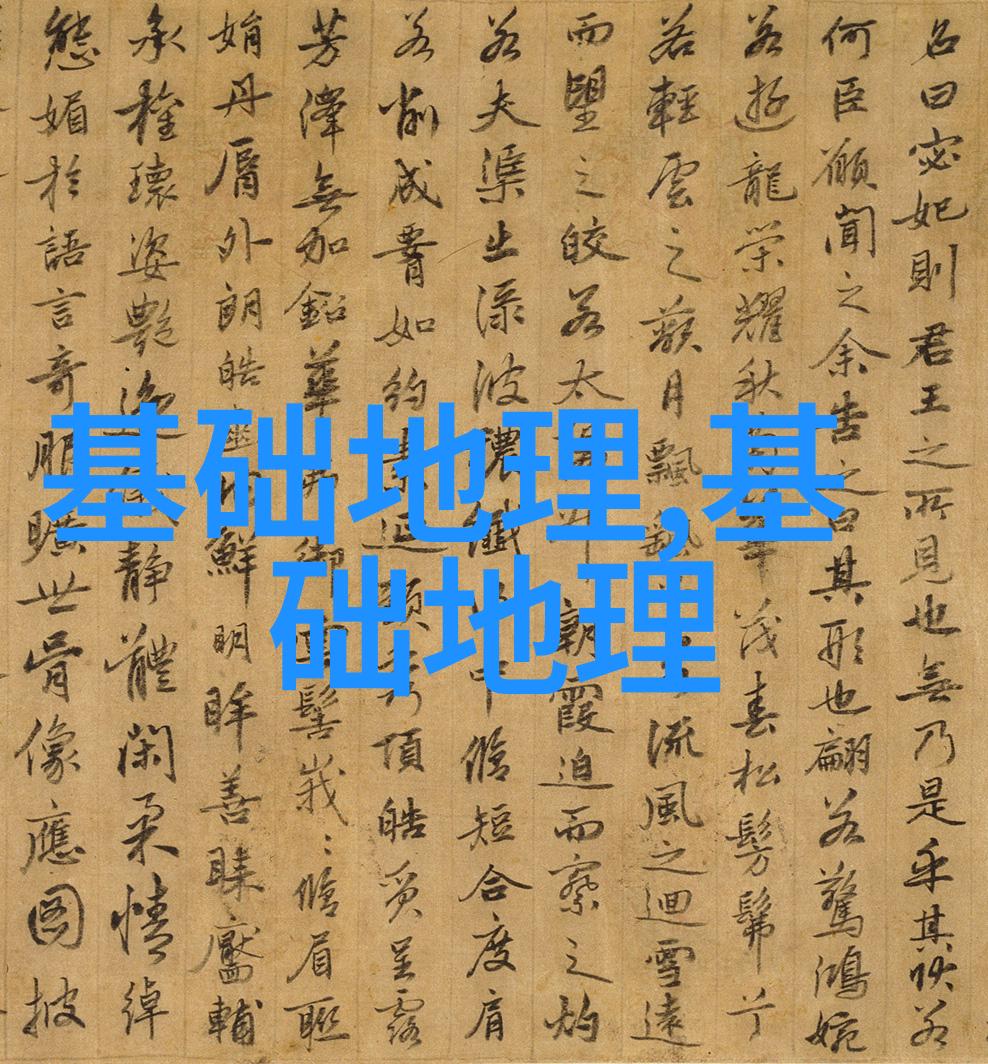 基础地理,基
础地理
名曰宓妃則君王之所見也無乃是乎其狀若
何臣願聞之余告之曰其形也翩若驚鴻婉
若遊龍榮耀秋華茂春松髣髴兮
若輕雲之蔽月飄颻流風之迴雪遠
而望之皎若太升朝霞迫而察之灼
若夫渠出淥波穠纖中脩短合度肩
若削成腰如約素延頸秀項皓質呈露
芳澤無加鉛華弗御雲髻峩〻脩眉聯
娟丹脣外朗皓齒內鮮明眸善睞靨輔
承權瓌姿艷逸靜體閑柔情綽
態媚於語言奇服曠世骨像應圖披